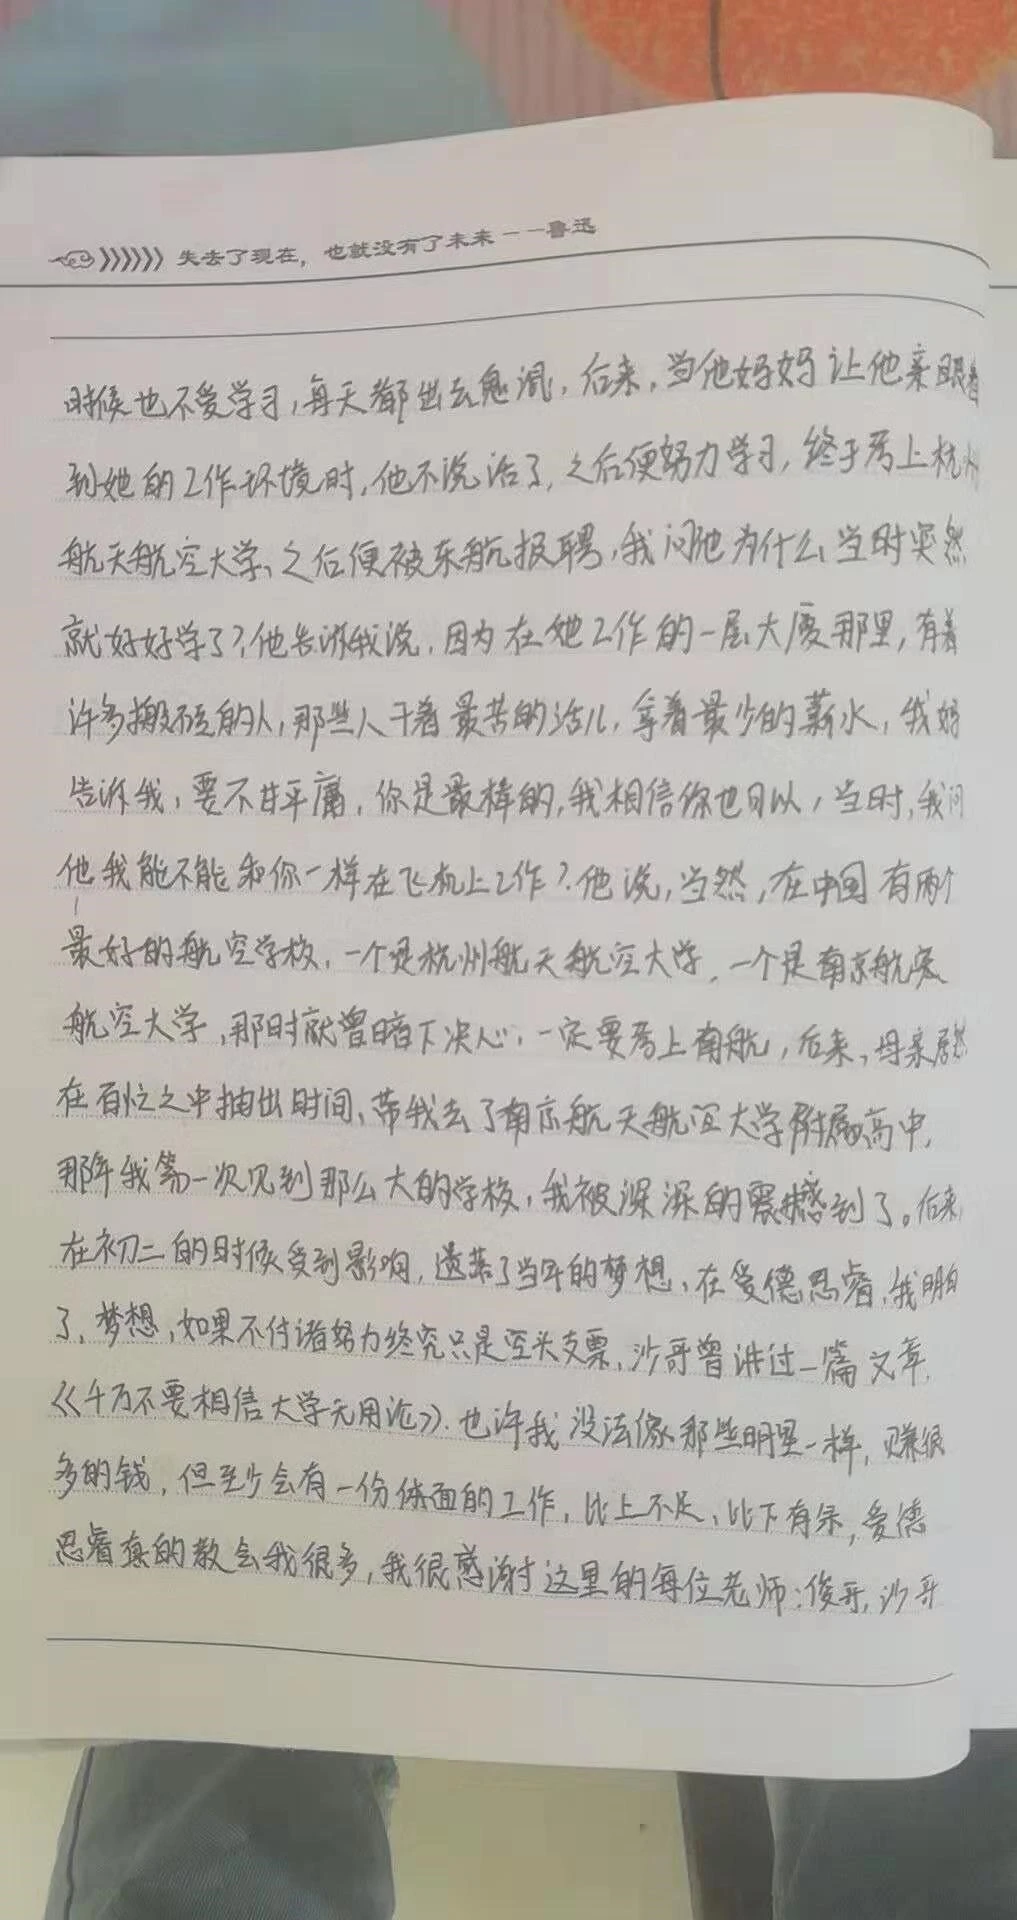 失去了现在，也就没有了未来--鲁迅
时候也不爱学习，每天都出去鬼混，后来，当他妈妈让他亲眼看
到她的工作环境时，他不说话了，之后便努力学习，终于考上杭州
航天航空大学、之后便被东航报聘，我问他为什么当时突然
就好好学了？他告诉我说，因为在她工作的一层大厦那里，有着
许多搬砖的人，那些人干着最苦的活儿，拿着最少的薪水，我妈
告诉我，要不甘平庸，你是最棒的，我相信你也可以，当时，我问
他我能不能和你一样在飞机上工作？他说，当然，在中国有两个
最好的航空学校，一个是杭州航天航空大学，一个是南京航
航空大学，那时就曾暗下决心，一定要考上南航，后来，母亲居然
在百忙之中抽出时间，带我去了南京航天航 大学附属高中，
那年我第一次见到那么大的学校，我被深深的震撼到了。后来
在初二的时候受到影响，遗落了当年的梦想、在爱德思睿，我明白
了，梦想，如果不付诸努力终究只是空头支票，沙哥曾讲过一篇文章，
《千万不要相信大学无用论》．也许我没法像那些明星一样，赚很
多的钱，但至少会有一份体面的工作，比上不足，比下有余，爱德
思睿真的教会我很多，我很感谢这里的每位老师：俊哥，沙哥